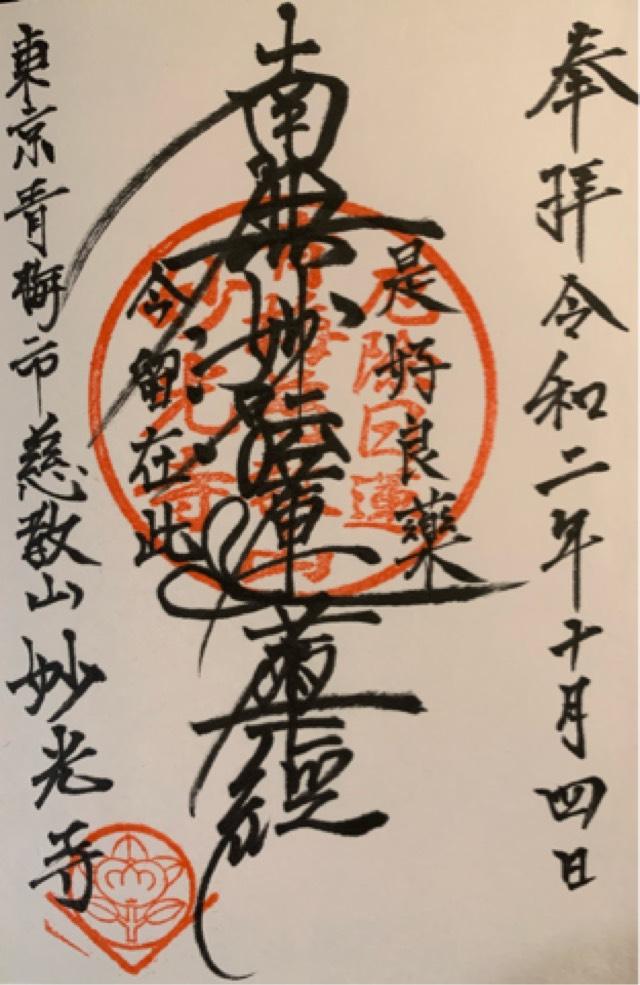 奉拝令和二年十月四日
是好良薬
南無妙法蓮華経
今留在此
東京青梅市慈敬山妙光寺